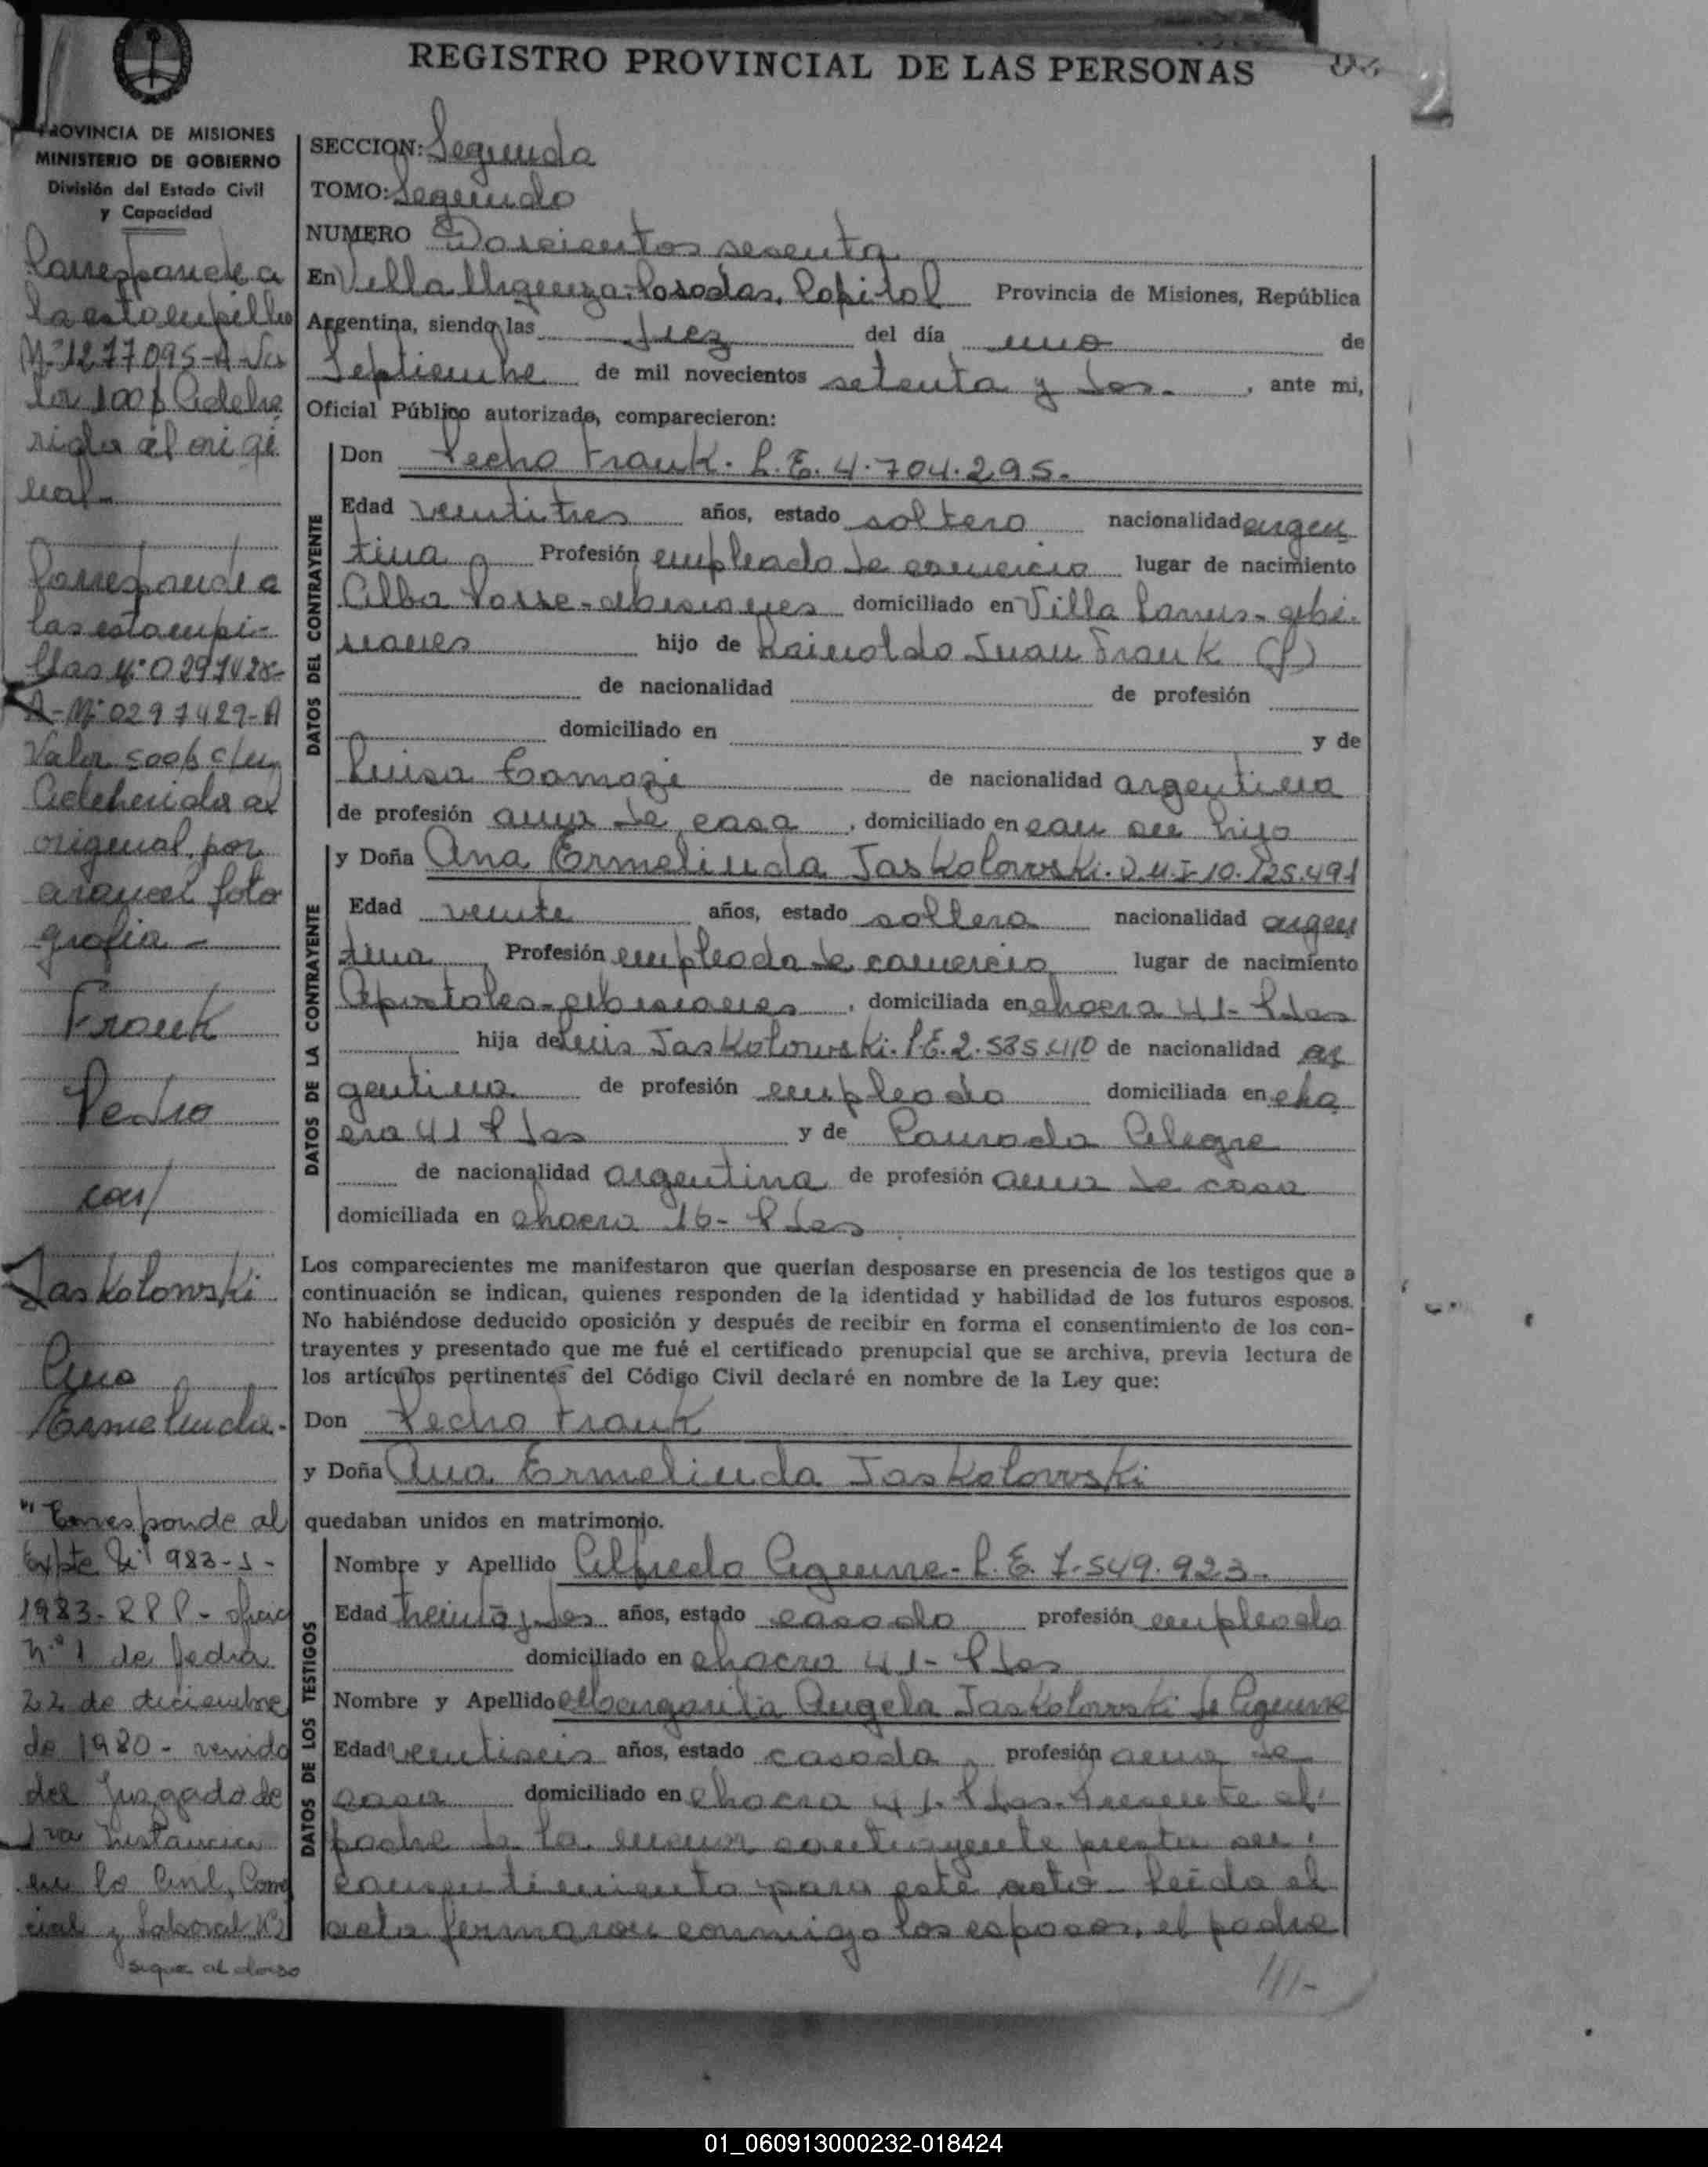 REGISTRO PROVINCIAL DE LAS PERSONAS
PROVINCIA DE MISIONES
MINISTERIO DE GOBIERNO
División del Estado Civil
y Capacidad
Corresponde a
la estampilla
Nº 1277095-A-Va
lor 100$ Adehe
rida al origi
nal-
Corresponde a
las estampi-
llas Nº 0297428-
A-Nº 0297429-A
Valor 500$ c/u
Adherida al
original, por
arancel foto
grafia-
Frank
Pedro
con/
Jaskolowski
Ana
Ermelinda-
"Corresponde al
Expte Nº 983-J-
1983-RPP-
Nº1 de fecha
22 de diciembre
de 1980- venido
del Juzgado de
1ra Instancia
en lo Civil, Comer
cial y Laboral Nº2
sigue al dorso
SECCION: Segunda
TOMO: Segundo
NUMERO Doscientos sesenta
En Villa Urquiza-Posadas, Capital Provincia de Misiones, República
Argentina, siendo las diez del día uno de
Septiembre de mil novecientos setenta y dos- , ante mi,
Oficial Público autorizado, comparecieron:
DATOS DEL CONTRAYENTE
Don Pedro Frank. L.E. 4.704.295.
Edad veintitres años, estado soltero nacionalidad argen
tina Profesión empleado de comercio lugar de nacimiento
Alba Posse-Misiones domiciliado en Villa Lanus-Mi
siones hijo de Rainoldo Juan Frank (f)
de nacionalidad de profesión
domiciliado en y de
Luisa de nacionalidad argentina
de profesión ama de casa , domiciliado en con su hijo
DATOS DE LA CONTRAYENTE
y Doña Ana Ermelinda Jaskolowski. D.N.I-10.125.491
Edad veinte años, estado soltera nacionalidad argen
tina Profesión empleada de comercio lugar de nacimiento
Apostoles-Misiones , domiciliada en chacra 41-Pdas
hija de Luis Jaskolowski. L.E. 2.585.410 de nacionalidad ar
gentino de profesión empleado domiciliada en cha
cra 41 Pdas y de Alegre
de nacionalidad argentina de profesión ama de casa
domiciliada en chacra 16-Pdas
Los comparecientes me manifestaron que querían desposarse en presencia de los testigos que a
continuación se indican, quienes responden de la identidad y habilidad de los futuros esposos.
No habiéndose deducido oposición y después de recibir en forma el consentimiento de los con-
trayentes y presentado que me fué el certificado prenupcial que se archiva, previa lectura de
los artículos pertinentes del Código Civil declaré en nombre de la Ley que:
Don Pedro Frank
y Doña Ana Ermelinda Jaskolowski
quedaban unidos en matrimonio.
DATOS DE LOS TESTIGOS
Nombre y Apellido Alfredo Aguirre-L.E. 7.549.923-
Edad treinta y dos años, estado casado profesión empleado
domiciliado en chacra 41-Pdas
Nombre y Apellido Margarita Angela Jaskolowski de Aguirre
Edad veintiseis años, estado casada , profesión ama de
casa domiciliado en chacra 41-Pdas-Presente el
padre de la menor contrayente presta su
consentimiento para este acto- Leida el
acta firmaron conmigo los esposos, el padre
01_060913000232-018424